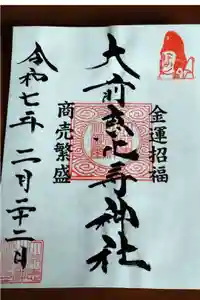 金運招福
大前恵比寿神社
商売繁盛
令和七年 二月二十二日